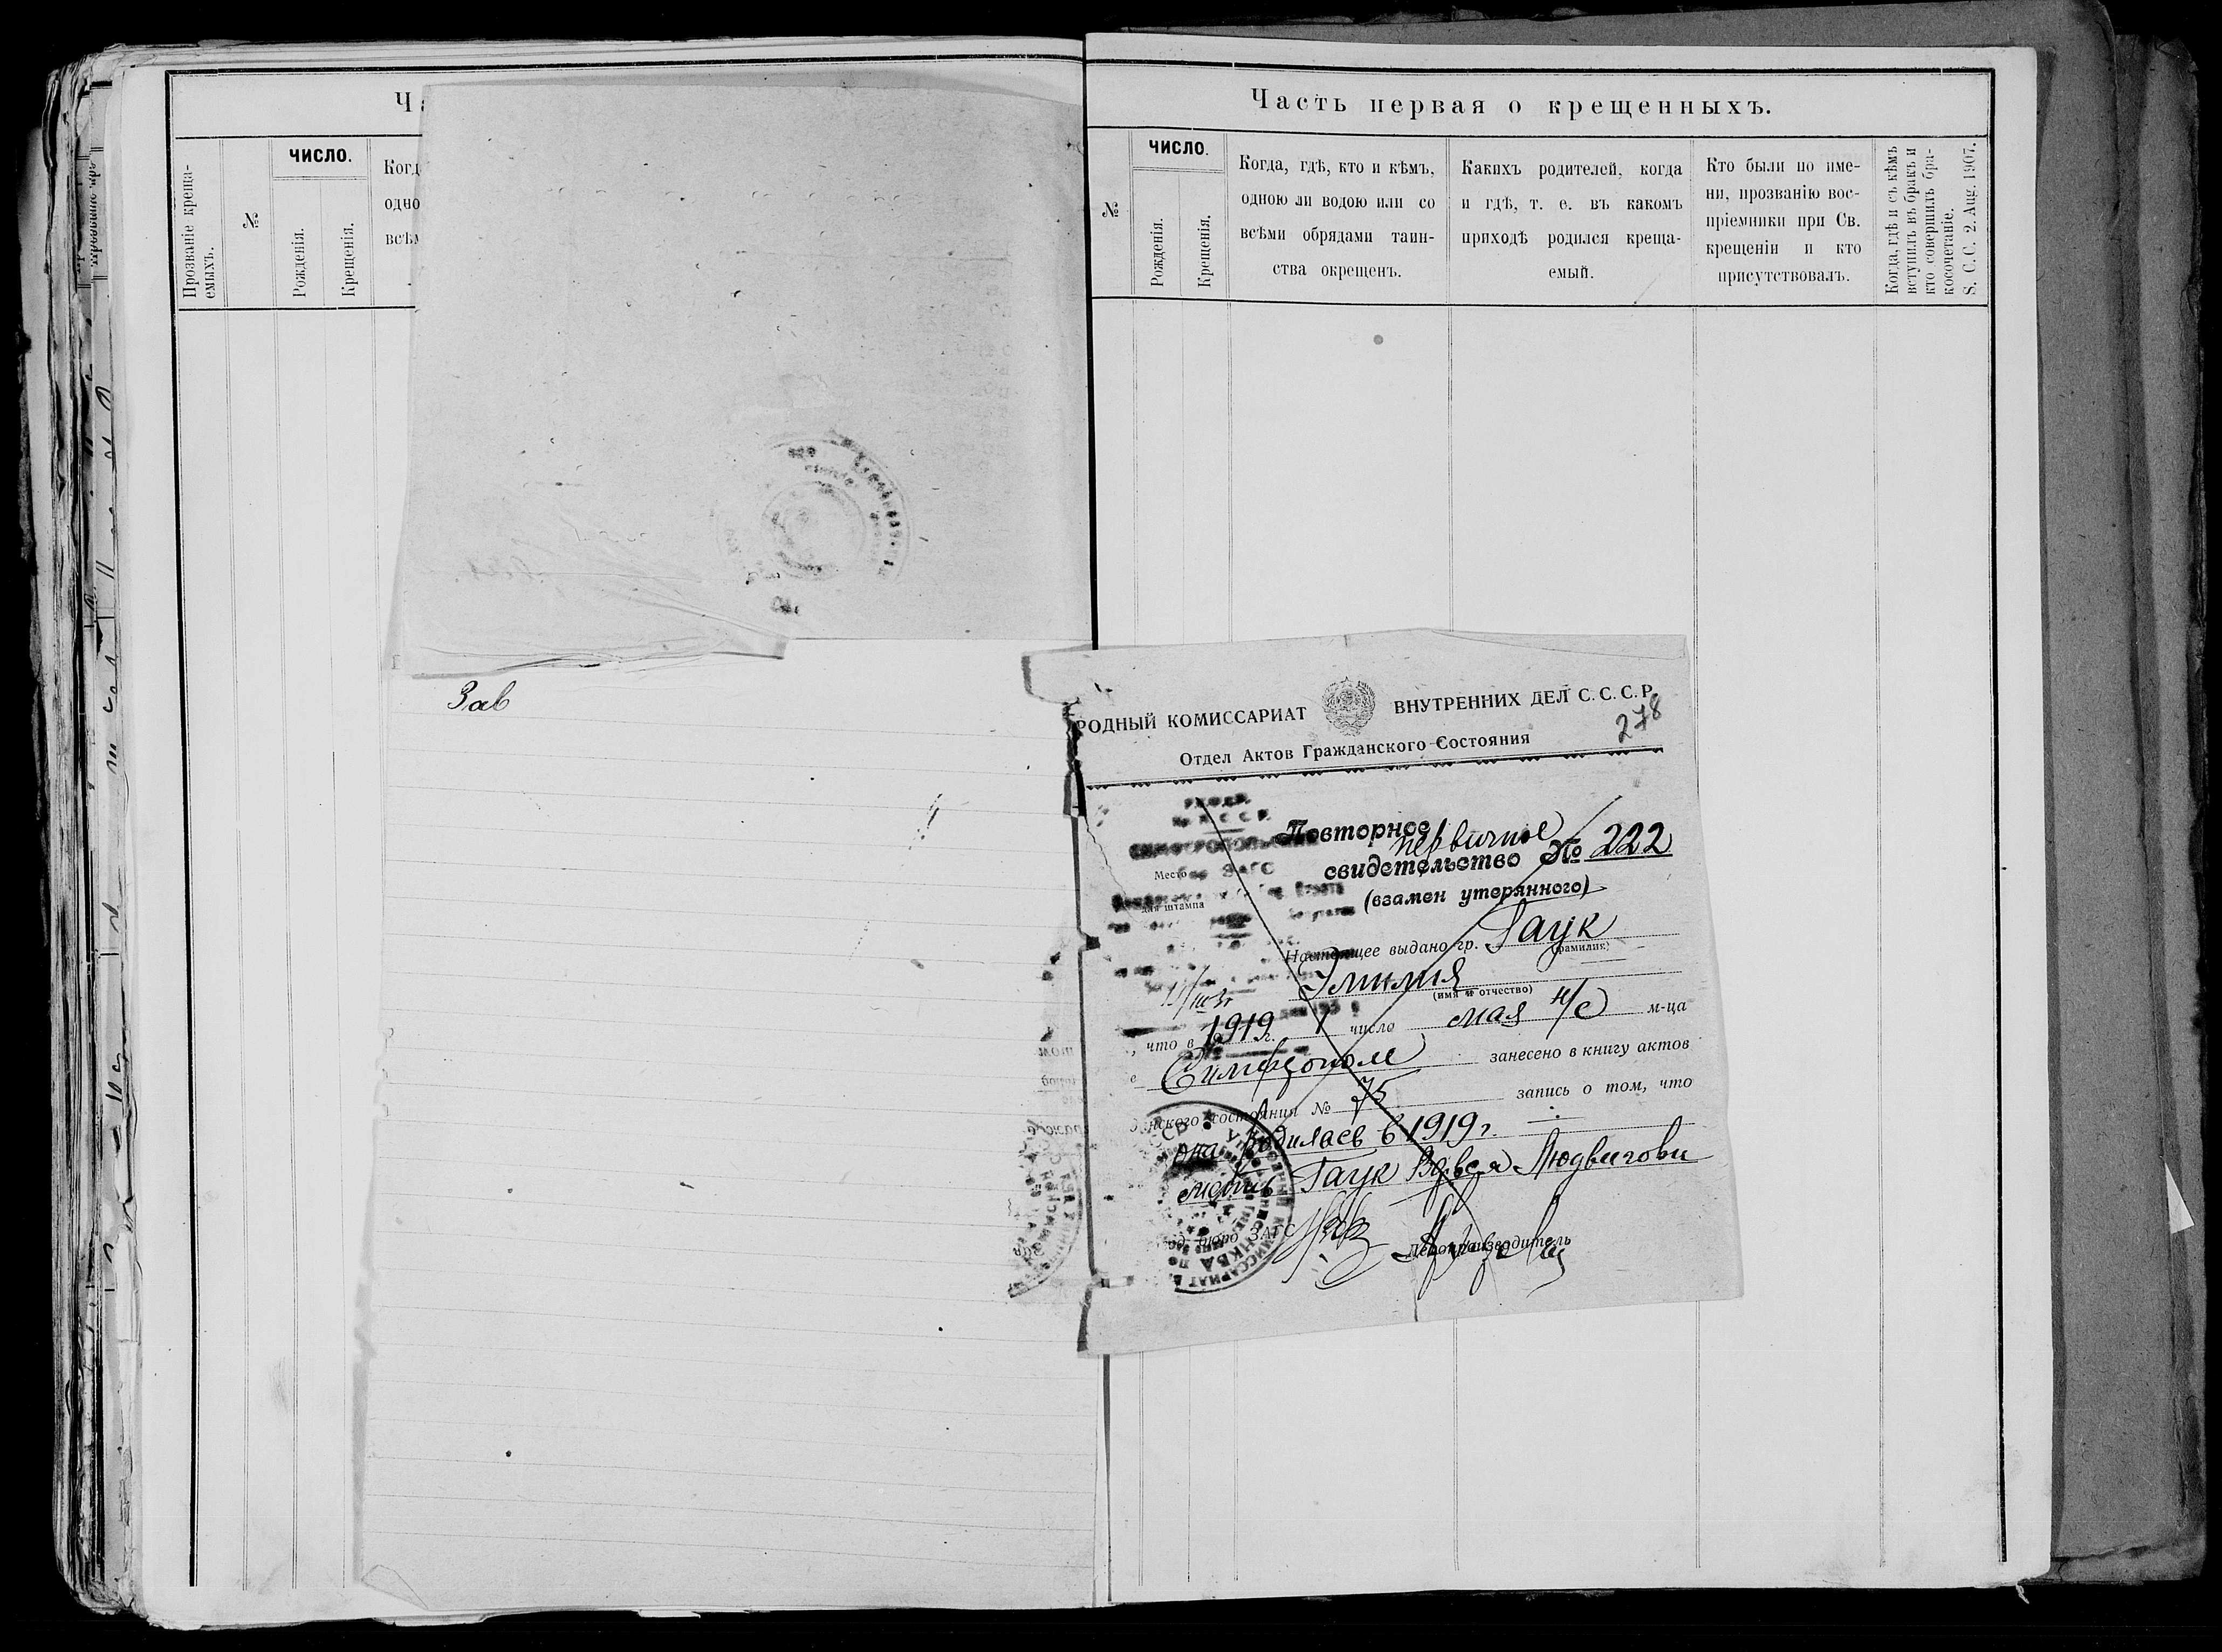 Ча
Прозваніе креща-
емыхъ.
№
ЧИСЛО.
Рожденія.
Крещенія.
Когд
одно
всѣм
Зав
Часть первая о крещенныхъ.
№
ЧИСЛО.
Рожденія.
Крещенія.
Когда, гдѣ, кто и кѣмъ,
одною ли водою или со
всѣми обрядами таин-
ства окрещенъ.
Какихъ родителей, когда
и гдѣ, т. е. въ какомъ
приходѣ родился креща-
емый.
Кто были по име-
ни, прозванію вос-
пріемники при Св.
крещеніи и кто
присутствовалъ.
Когда, гдѣ и съ кѣмъ
вступилъ въ бракъ и
кто совершилъ бра-
косочетаніе.
S. C. C. 2. Aug. 1907.
РОДНЫЙ КОМИССАРИАТ ВНУТРЕННИХ ДЕЛ С.С.С.Р.
278
Отдел Актов Гражданского Состояния
Повторное
первичное
свидетельство № 222
Место
для штампа
(взамен утерянного)
Настоящее выдано гр. Гаук
(фамилия)
Эмилия
(имя и отчество)
, что в 1919 г. 1 число мая н/с м-ца
е Симферополе занесено в книгу актов
нского состояния № 75 запись о том, что
она родилась в 1919 г.
мать Гаук Людвигови
бюро ЗАГС
Делопроизводитель